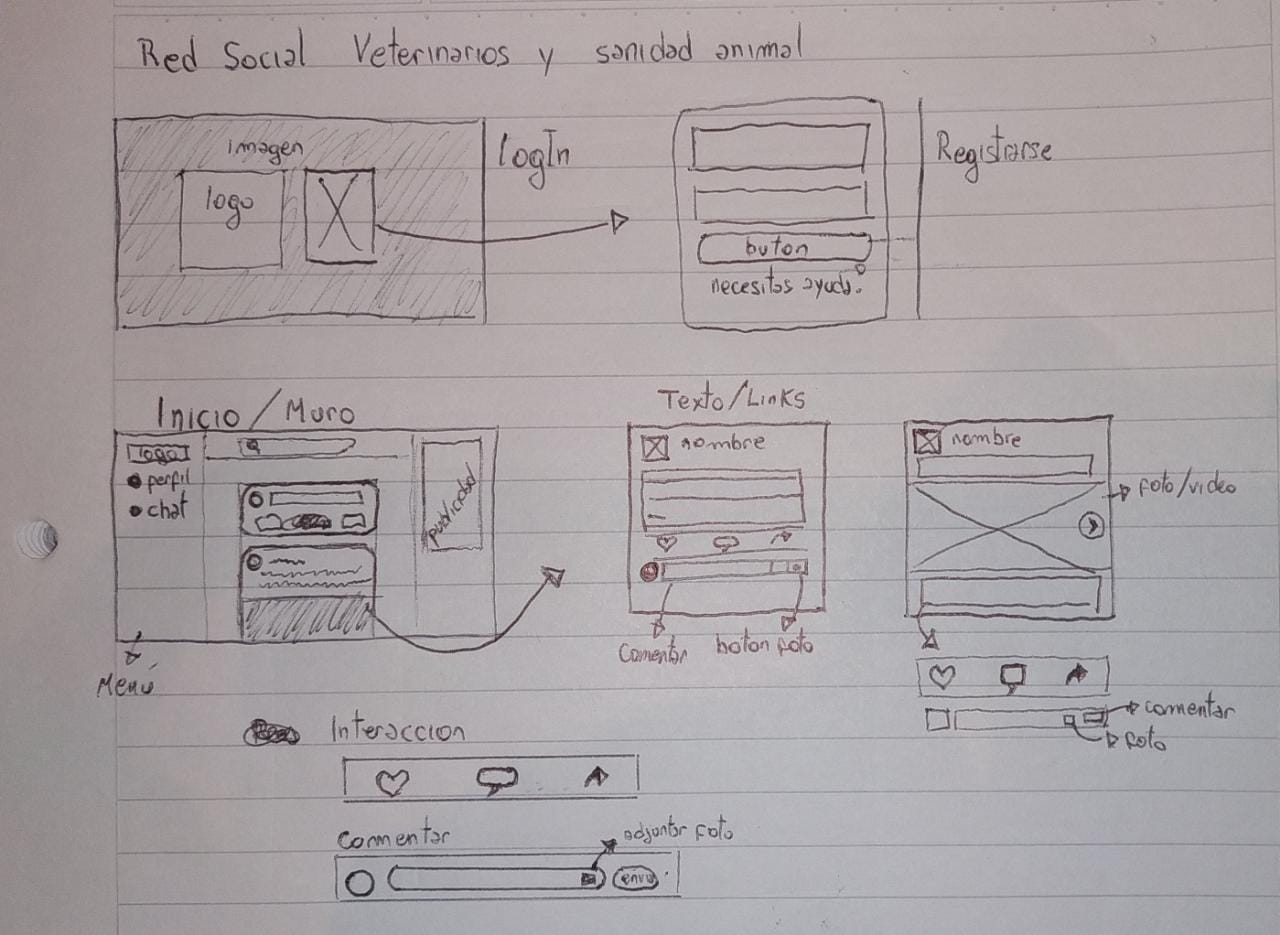 Red Social Veterinarios y sanidad animal
imagen
logo
logIn
buton
necesitas ayuda?
Registrarse
Inicio / Muro
logo
perfil
chat
publicidad
Menú
Texto/Links
nombre
Comentar
boton foto
nombre
foto/video
comentar
foto
Interaccion
Comentar
adjuntar foto